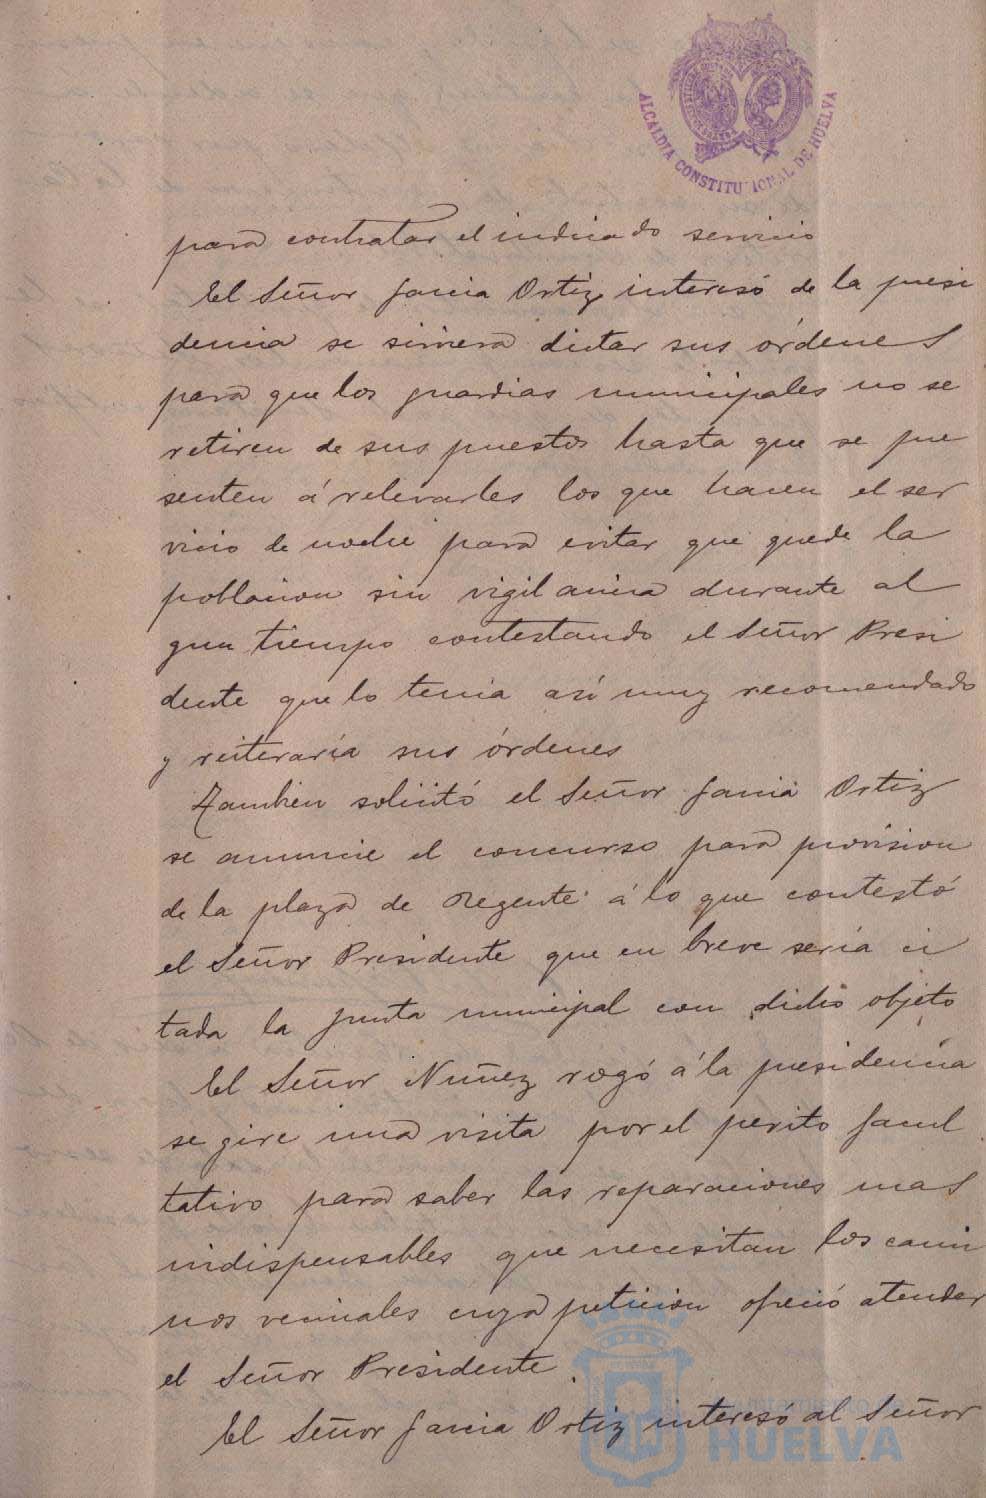 ALCALDIA CONSTITUCIONAL DE HUELVA
para contratar el indicado servicio
El Señor Garcia Ortiz interesó de la presi
dencia se sirviera dictar sus órdenes
para que los guardias municipales no se
retiren de sus puestos hasta que se pre
senten á relevarles los que hacen el ser
vicio de noche para evitar que quede la
poblacion sin vigilancia durante al
gun tiempo contestando el Señor Presi
dente que lo tenia así muy recomendado
y reiteraría sus órdenes
Tambien solicitó el Señor Garcia Ortiz
se anuncie el concurso para provision
de la plaza de Regente á lo que contestó
el Señor Presidente que en breve sería ci
tada la junta municipal con dicho objeto
El Señor Nuñez rogó á la presidencia
se gire una visita por el perito facul
tativo para saber las reparaciones mas
indispensables que necesitan los cami
nos vecinales cuya peticion ofreció atender
el Señor Presidente.
El Señor Garcia Ortiz interesó al Señor
AYUNTAMIENTO DE
HUELVA